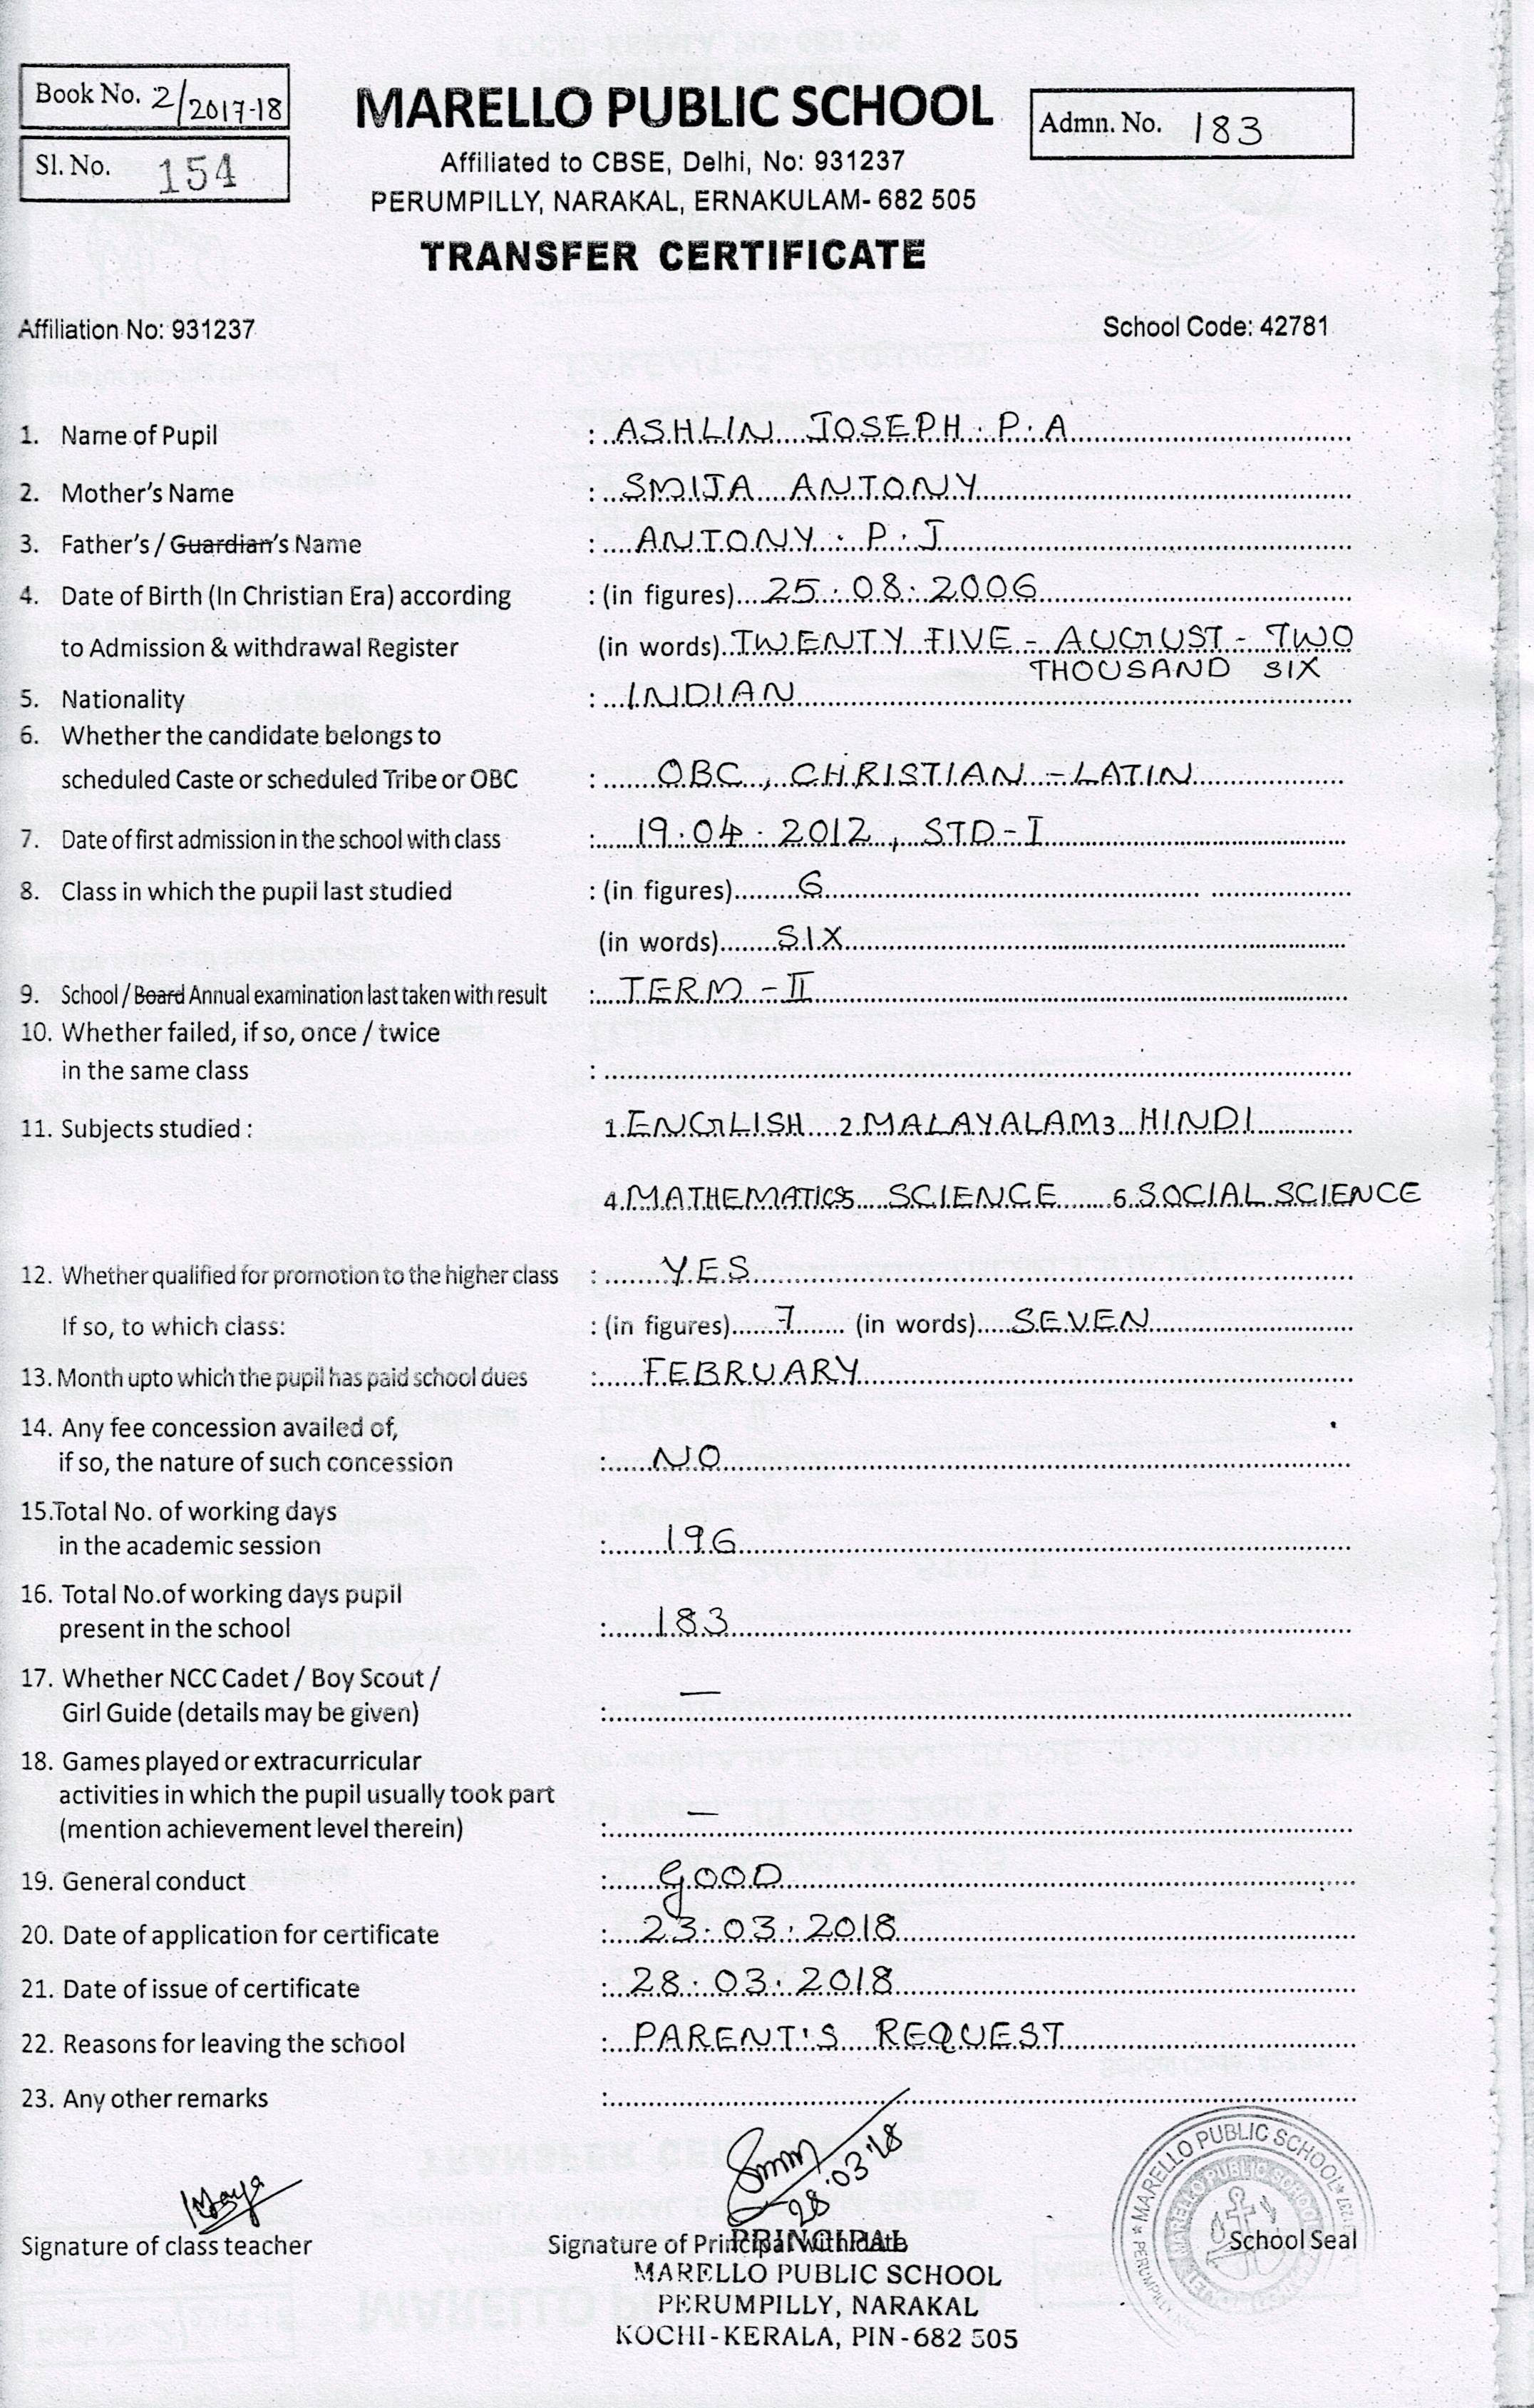 Book No. 2/2017-18
Sl. No. 154
MARELLO PUBLIC SCHOOL
Admn. No. 183
Affiliated to CBSE, Delhi, No: 931237
PERUMPILLY, NARAKAL, ERNAKULAM- 682 505
TRANSFER CERTIFICATE
Affiliation No: 931237 School Code: 42781
1. Name of Pupil : ASHLIN JOSEPH. P. A
2. Mother's Name : SMIJA ANTONY
3. Father's / Guardian's Name : ANTONY. P. J
4. Date of Birth (In Christian Era) according : (in figures) 25.08.2006
to Admission & withdrawal Register (in words) TWENTY FIVE - AUGUST - TWO
THOUSAND SIX
5. Nationality : INDIAN
6. Whether the candidate belongs to
scheduled Caste or scheduled Tribe or OBC : OBC, CHRISTIAN - LATIN
7. Date of first admission in the school with class : 19.04.2012, STD-I
8. Class in which the pupil last studied : (in figures) 6
(in words) SIX
9. School / Board Annual examination last taken with result : TERM - II
10. Whether failed, if so, once / twice
in the same class :
11. Subjects studied : 1. ENGLISH 2. MALAYALAM 3. HINDI
4. MATHEMATICS 5. SCIENCE 6. SOCIAL SCIENCE
12. Whether qualified for promotion to the higher class : YES
If so, to which class: : (in figures) 7 (in words) SEVEN
13. Month upto which the pupil has paid school dues : FEBRUARY
14. Any fee concession availed of,
if so, the nature of such concession : NO
15. Total No. of working days
in the academic session : 196
16. Total No. of working days pupil
present in the school : 183
17. Whether NCC Cadet / Boy Scout /
Girl Guide (details may be given) : —
18. Games played or extracurricular
activities in which the pupil usually took part
(mention achievement level therein) : —
19. General conduct : GOOD
20. Date of application for certificate : 23.03.2018
21. Date of issue of certificate : 28.03.2018
22. Reasons for leaving the school : PARENT'S REQUEST
23. Any other remarks :
28.03.'18
MARELLO PUBLIC SCHOOL
MARELLO PUBLIC SCHOOL
Signature of class teacher Signature of Principal with date School Seal
PRINCIPAL
MARELLO PUBLIC SCHOOL
PERUMPILLY, NARAKAL
KOCHI-KERALA, PIN-682 505